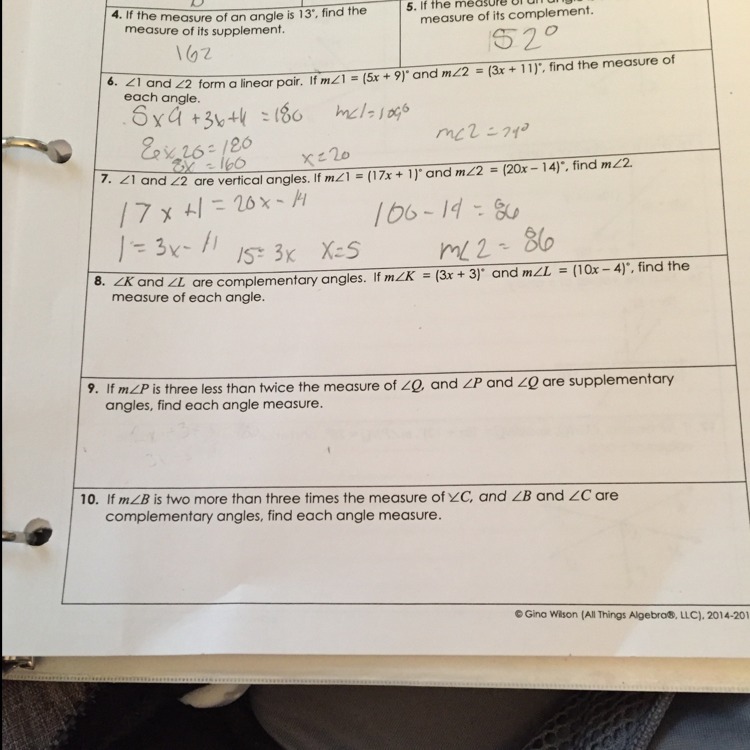 4. If the measure of an angle is 13°, find the
measure of its supplement.
162
5. If the measure of an
measure of its complement.
52°
6. ∠1 and ∠2 form a linear pair. If m∠1 = (5x + 9)° and m∠2 = (3x + 11)°, find the measure of
each angle.
5x9 +3x+11 = 180
m∠1=109°
m∠2 =
8x 20=180
8x = 160
x=20
7. ∠1 and ∠2 are vertical angles. If m∠1 = (17x + 1)° and m∠2 = (20x – 14)°, find m∠2.
17x +1 = 20x – 14
100 – 14 = 86
1 = 3x –
15= 3x X=5
m∠2 = 86
8. ∠K and ∠L are complementary angles. If m∠K = (3x + 3)° and m∠L = (10x – 4)°, find the
measure of each angle.
9. If m∠P is three less than twice the measure of ∠Q, and ∠P and ∠Q are supplementary
angles, find each angle measure.
10. If m∠B is two more than three times the measure of ∠C, and ∠B and ∠C are
complementary angles, find each angle measure.
© Gina Wilson (All Things Algebra®, LLC), 2014-201